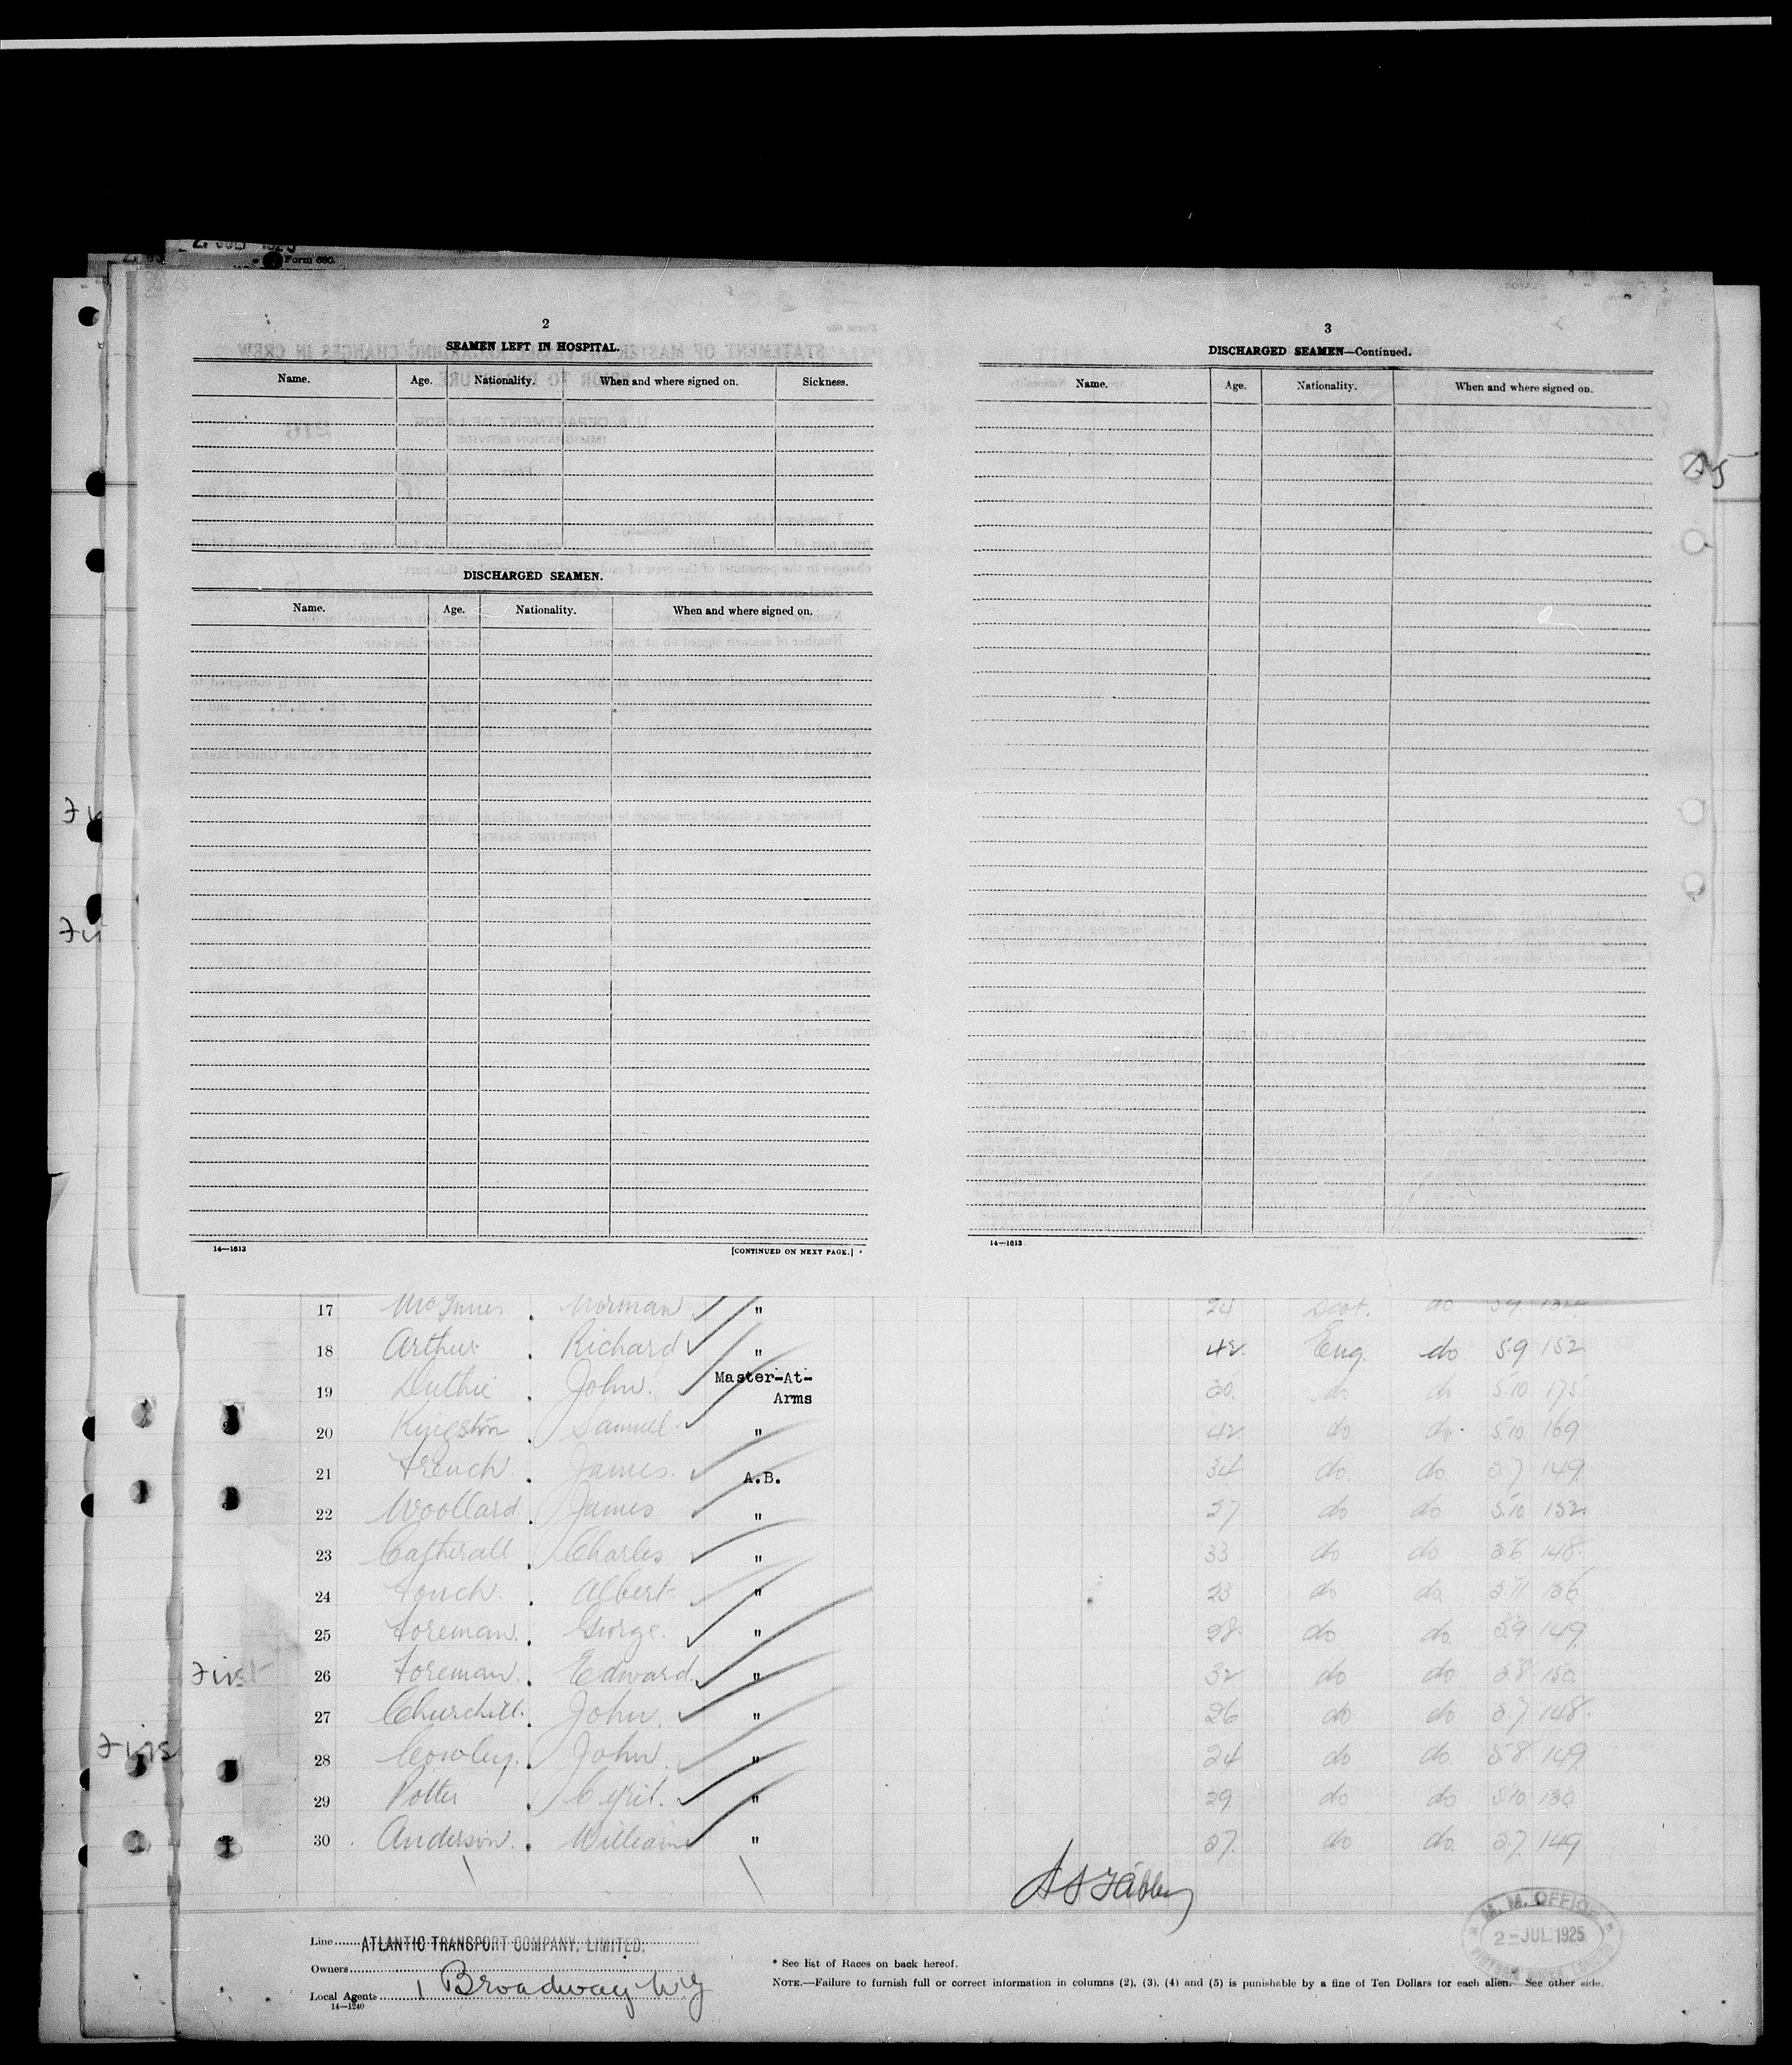 Form 680.
2
SEAMEN LEFT IN HOSPITAL.
Name. Age. Nationality. When and where signed on. Sickness.
DISCHARGED SEAMEN.
Name. Age. Nationality. When and where signed on.
14—1613 [CONTINUED ON NEXT PAGE.]
3
DISCHARGED SEAMEN—Continued.
Name. Age. Nationality. When and where signed on.
14—1613
17 McInnes Norman " 24 Scot. do
18 Arthur Richard " 42 Eng. do 5.9 152
19 Duthie John Master-At-Arms 30. do do 5.10 175
20 Kingston Samuel " 42 do do 5.10 169
21 French James. A.B. 34 do. do. 5.7 149
22 Woollard James " 27 do do 5.10 152
23 Catherall Charles " 33 do do 5.6 148
24 Albert " 23 do do 5.11 156
25 Foreman. George. " 28 do do. 5.9 149
26 Foreman. Edward. " 32 do do 5.8 150
27 Churchill. John. " 26 do do 5.7 148
28 Cowley. John " 24 do do 5.8 149
29 Potter Cyril. " 29 do do 5.10 150
30 Anderson. William " 27. do do. 5.7 149
First
Line ATLANTIC TRANSPORT COMPANY, LIMITED.
Owners
Local Agents 1 Broadway N.Y
14—1240
* See list of Races on back hereof.
NOTE.—Failure to furnish full or correct information in columns (2), (3), (4) and (5) is punishable by a fine of Ten Dollars for each alien. See other side.
M. M. OFFICE
2-JUL 1925